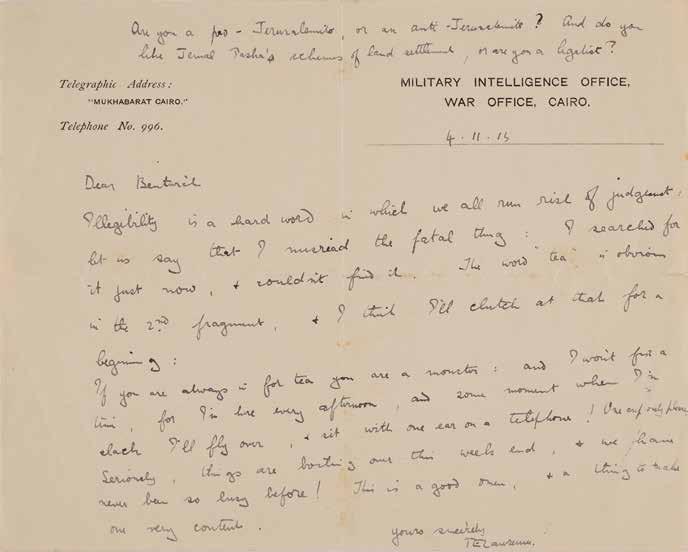 Are you a pro-Jerusalemite, or an anti-Jerusalemite? And do you
like Jemal Pasha's schemes of land settlement, or are you a legalist?
Telegraphic Address:
"MUKHABARAT CAIRO."
Telephone No. 996.
MILITARY INTELLIGENCE OFFICE,
WAR OFFICE, CAIRO.
4.11.15
Dear Bentwich
Illegibility is a hard word in which we all run risk of judgment:
let us say that I misread the fatal thing: I searched for
it just now, & couldn't find it. The word "tea" is obvious
in the 2nd fragment, & I think I'll clutch at that for a
beginning:
If you are always in for tea you are a monster: and I won't fix a
time, for I'm here every afternoon, and some moment when I'm
slack I'll fly over, & sit with one ear on a telephone! One cup only please
Seriously, things are boiling over this weeks end, & we have
never been so busy before! This is a good omen, & a thing to make
one very content.
yours sincerely
TELawrence.